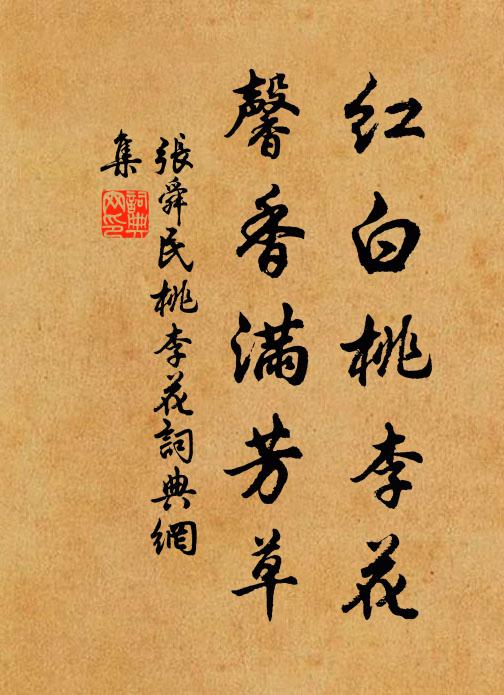 红白桃李花
馨香满芳草
張舜民桃李花詞典網
集
詞典
网印